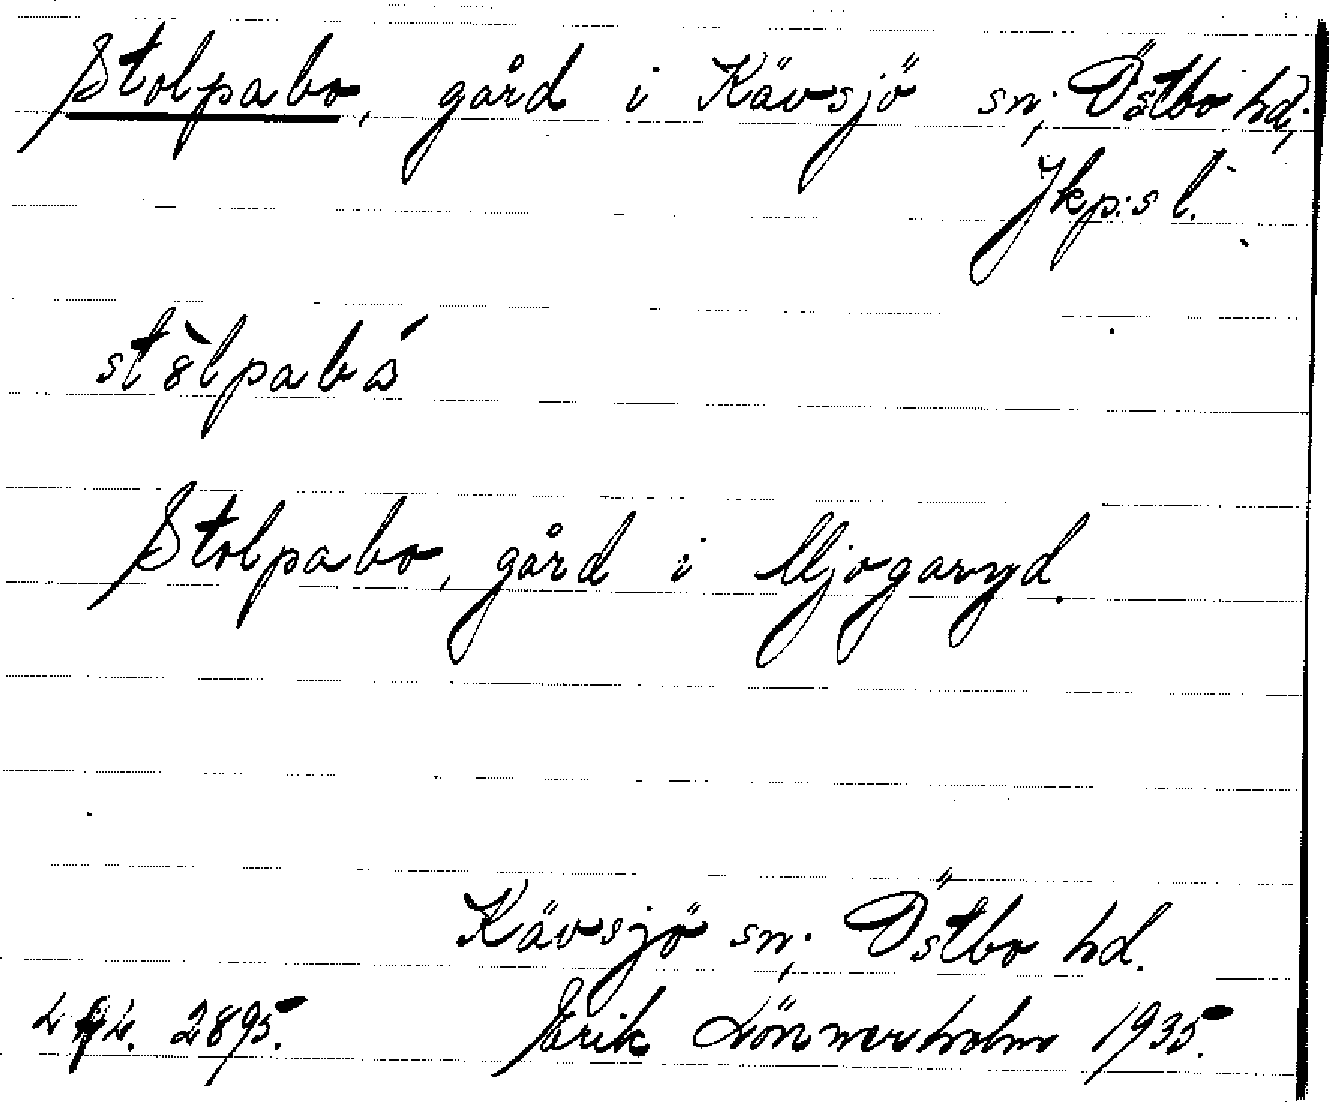 Stolpabo, gård i Kävsjö sn; Östbo hd;
Jkp:s l.
Stolpabo, gård i Mjogaryd.
Kävsjö sn; Östbo hd.
2895. Erik Lönnerholm 1935.